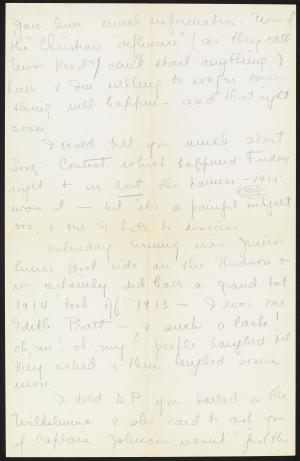 gave him much information. Now if
the "Christian Influence" (as they call
Miss Reed) can't start anything I
have & I'm willing to wager some-
thing will happen - and that right
soon.
I could tell you much about
Song-Contest which happened Friday
night & we lost the banner - 1915
won it - but it's a painful subject
too, & one I hate to discuss.
Saturday Evening was Junior
Senior Boat ride on the Hudson &
we certainly did have a grand time
1914 "took off" 1913 - I was one
Edith Pratt - & such a lark!
oh, me! oh, my! people laughed till
they ached & then laughed some
more.
I told D.P. you sailed on the
Wilhelmina & she said to ask you
if Captain Johnson wasn't "just the